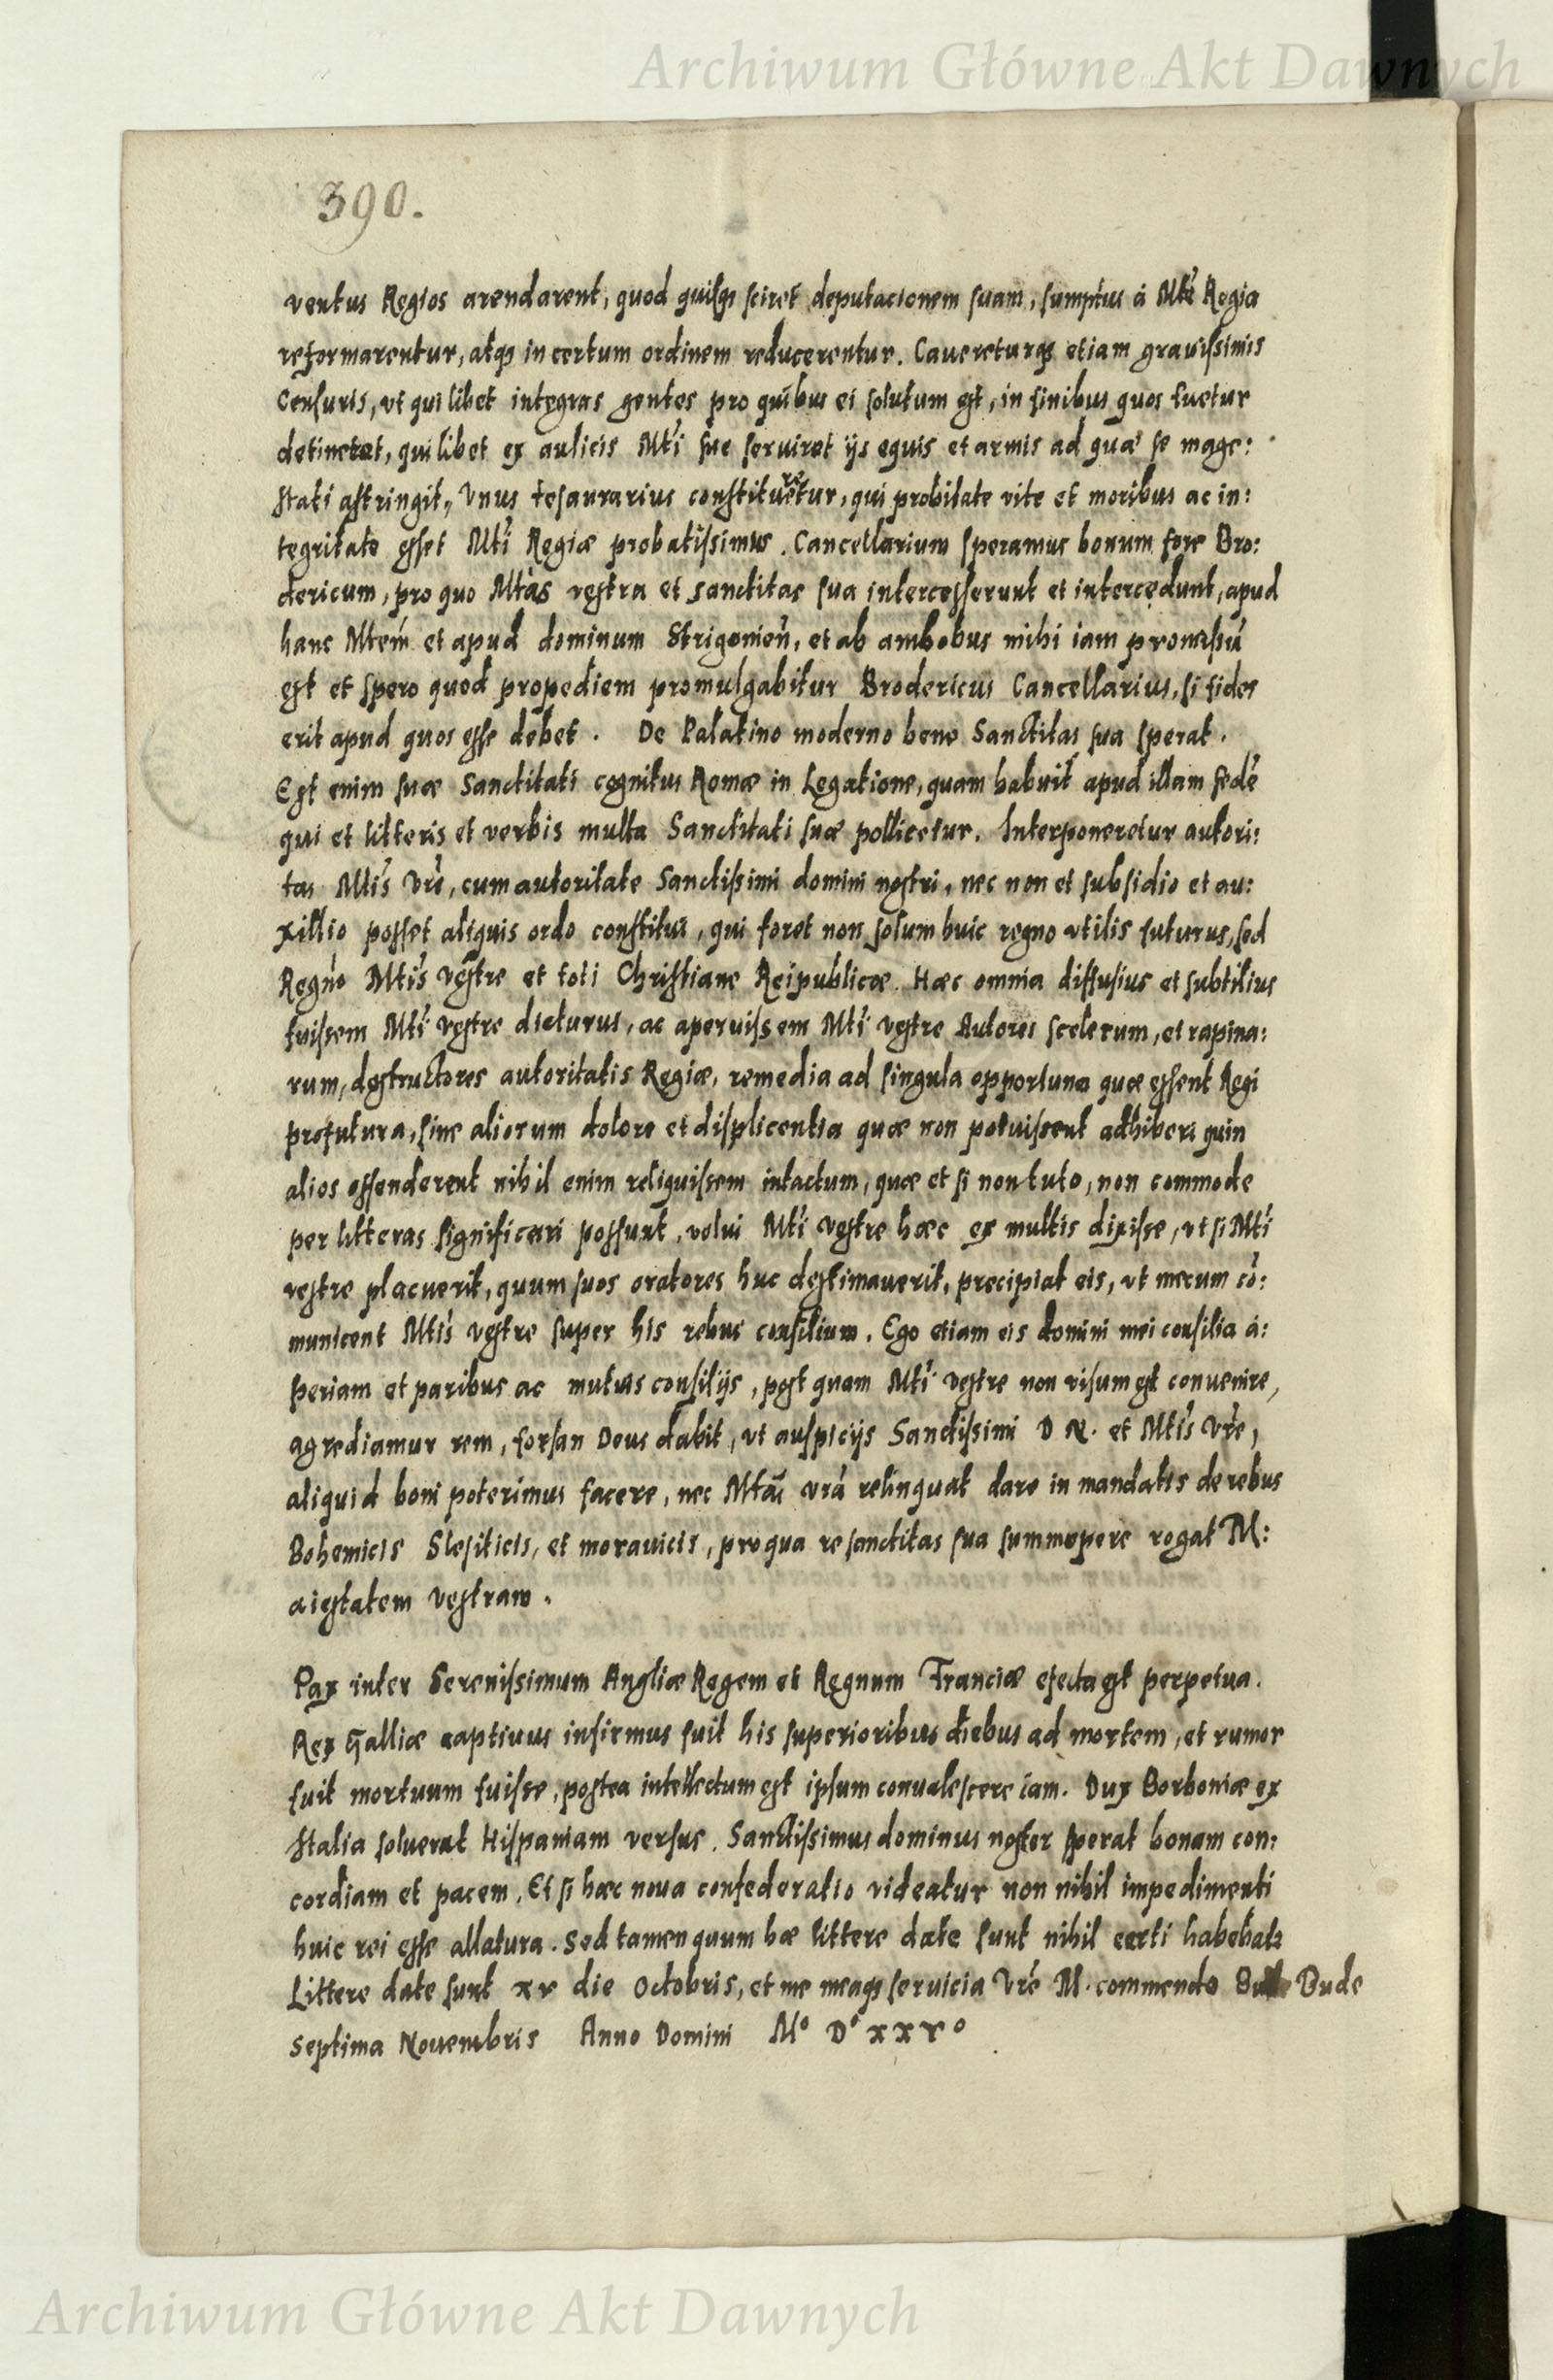 Archiwum Główne Akt Dawnych
390.
ventus Regios arendarent, quod quisq3 sciret deputacionem suam, sumptus à Mte Regia
reformarentur, atq3 in certum ordinem reducerentur. Caveretur q3 etiam gravissimis
Censuris, vt quilibet integras gentes pro quibus ei solutum est, in finibus quos tuetur
detineret, quilibet ex aulicis Mti sue serviret ijs equis et armis ad quæ se mage:
stati astringit, Vnus tesaurarius constitueretur, qui probitate vite et moribus ac in:
tegritate esset Mti Regiæ probatissimus. Cancellarium speramus bonum fore Bro:
dericum, pro quo Mtas vestra et sanctitas sua intercesserunt et intercedunt, apud
hanc Mtem et apud dominum Strigonien̄, et ab ambobus mihi iam promissū
est et spero quod propediem promulgabitur Brodericus Cancellarius, si fides
erit apud quos esse debet. De Palatino moderno bene Sanctitas sua sperat.
Est enim suæ Sanctitati cognitus Romæ in Legatione, quam habuit apud illam sedē
qui et litteris et verbis multa Sanctitati suæ pollicetur. Interponeretur autori:
tas Mtis Vrē, cum autoritate Sanctissimi domini nostri, nec non et subsidio et au:
xillio posset aliquis ordo constitui, qui foret non solum huic regno vtilis futurus, sed
Regno Mtis vestre et toti Christiane Reipublicæ. Hæc omnia diffusius et subtilius
fuissem Mti vestre dicturus, ac aperuissem Mti vestre Autores scelerum, et rapina:
rum, destructores autoritatis Regiæ, remedia ad singula opportuna quæ essent Regi
profutura, sine aliorum dolore et displicentia quæ non potuissent adhiberi quin
alios offenderent nihil enim reliquissem intactum, quæ et si non tuto, non commode
per litteras significari possunt, volui Mti vestre hæc ex multis dixisse, vt si Mti
vestre placuerit, quum suos oratores huc destimaverit, precipiat eis, vt mecum cō:
municent Mtis vestre super his rebus consilium. Ego etiam eis domini mei consilia a:
periam et paribus ac mutuis consilijs, post quam Mti vestre non visum est convenire,
agrediamur rem, forsan Deus dabit, vt auspicijs Sanctissimi D N. et Mtis Vrē,
aliquid boni poterimus facere, nec Mtas vrā relinquat dare in mandatis de rebus
Bohemicis Slesiticis, et moravicis, pro qua re sanctitas sua summopere rogat M:
aiestatem vestram.
Pax inter Serenissimum Angliæ Regem et Regnum Franciæ efecta est perpetua.
Rex Galliæ captivus infirmus fuit his superioribus diebus ad mortem, et rumor
fuit mortuum fuisse, postea intellectum est ipsum convalescere iam. Dux Borboniæ ex
Italia solverat Hispaniam versus. Sanctissimus dominus noster sperat bonam con:
cordiam et pacem. Et si hæc nova confederatio videatur non nihil impedimenti
huic rei esse allatura. Sed tamen quum hæ littere date sunt nihil certi habebat2
Littere date sunt xv die Octobris, et me meaq3 servicia Vrē M. commendo Bude
septima Novembris Anno Domini Mo Do xxvo
Archiwum Główne Akt Dawnych